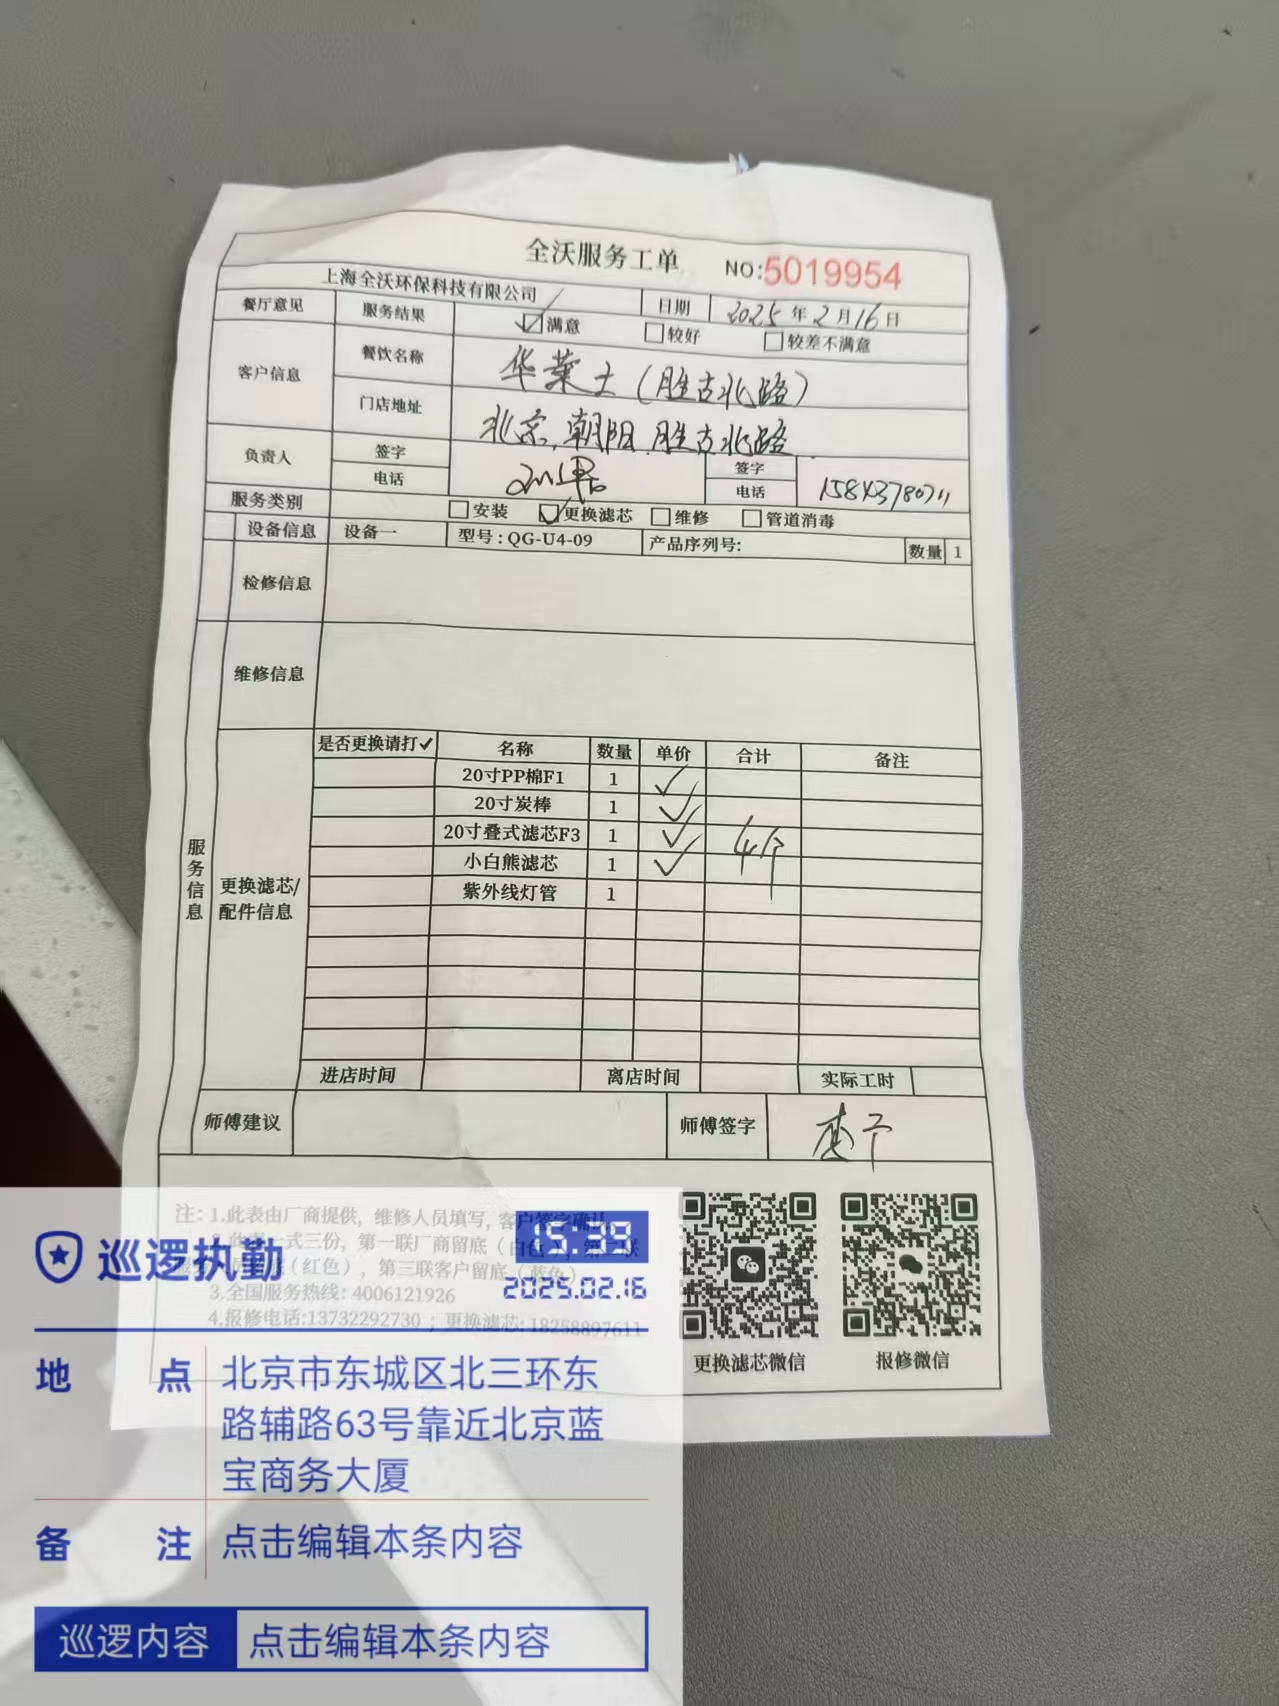 全沃服务工单 NO:5019954
上海全沃环保科技有限公司 日期 2025年2月16日
餐厅意见 服务结果 满意 较好 较差不满意
客户信息 餐饮名称 华莱士(胜古北路)
门店地址 北京.朝阳.胜古北路
负责人 签字 签字
电话 电话 15843780711
服务类别 安装 更换滤芯 维修 管道消毒
设备信息 设备一 型号:QG-U4-09 产品序列号: 数量 1
检修信息
维修信息
服务信息
更换滤芯/
配件信息
是否更换请打✓ 名称 数量 单价 合计 备注
20寸PP棉F1 1 ✓
20寸炭棒 1 ✓
20寸叠式滤芯F3 1 ✓ 4个
小白熊滤芯 1 ✓
紫外线灯管 1
进店时间 离店时间 实际工时
师傅建议 师傅签字
注: 1.此表由厂商提供, 维修人员填写, 客户签字确认
一式三份, 第一联厂商留底(白色), 第二联
(红色), 第三联客户留底(蓝色)
3.全国服务热线: 4006121926
4.报修电话:13732292730 ; 更换滤芯: 18258897611
更换滤芯微信 报修微信
巡逻执勤 15:39
2025.02.16
地点 北京市东城区北三环东
路辅路63号靠近北京蓝
宝商务大厦
备注 点击编辑本条内容
巡逻内容 点击编辑本条内容